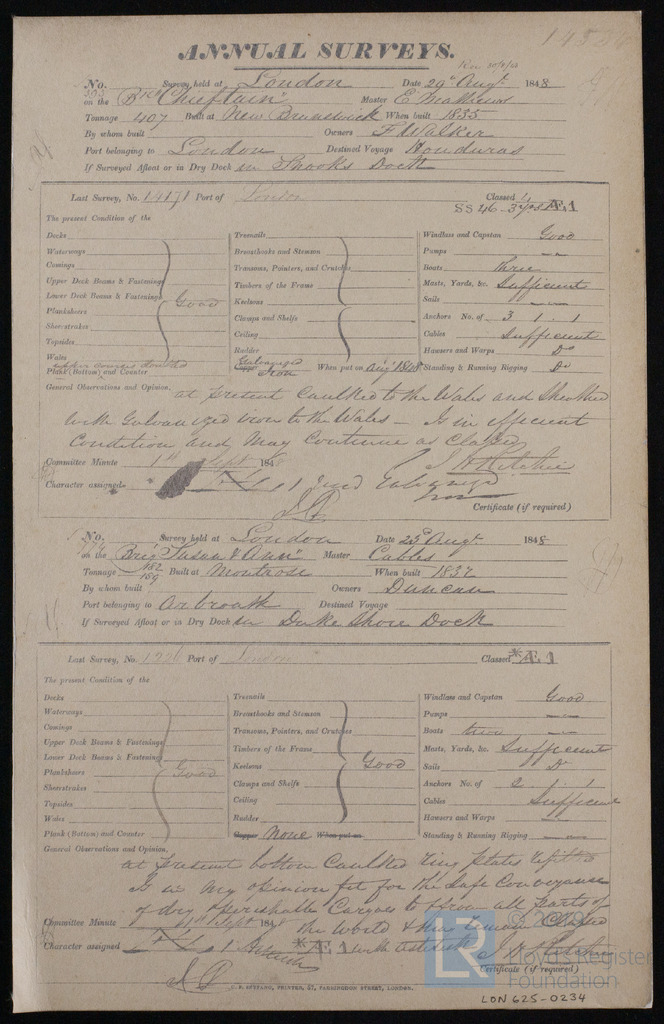 ANNUAL SURVEYS.
No. 593 Survey held at London Date 29th Augt. 1848
on the Bk "Chieftain" Master E Matheson
Tonnage 407 Built at New Brunswick When built 1835
By whom built Owners F Walker
Port belonging to London Destined Voyage Honduras
If Surveyed Afloat or in Dry Dock in Shooks Dock
Last Survey, No. 14171 Port of London Classed Æ1
SS 46-3yrs
The present Condition of the
Decks
Waterways
Comings
Upper Deck Beams & Fastenings
Lower Deck Beams & Fastenings Good
Plansheers
Sheerstrakes
Topsides
Wales
Plank (Bottom) and Counter
Treenails
Breasthooks and Stemson
Transoms, Pointers, and Crutches
Timbers of the Frame
Keelsons
Clamps and Shelfs
Ceiling
Rudder
Galvanized Iron When put on Augt 1848
Windlass and Capstan Good
Pumps
Boats three
Masts, Yards, &c. Sufficient
Sails
Anchors No. of 3 1 1
Cables Sufficient
Hawsers and Warps Do
Standing & Running Rigging Do
General Observations and Opinion, at present Caulked to the Wales and Sheathed
with Galvanized iron to the Wales - Is in efficient
Condition and May Continue as Classed
Committee Minute 1st Sept 1848
Character assigned Æ1
Certificate (if required)
No. Survey held at London Date 23d Augt. 1848
on the Brig "Susan & Ann" Master Cables
Tonnage 182 159 Built at Montrose When built 1837
By whom built Owners Duncan
Port belonging to Arbroath Destined Voyage
If Surveyed Afloat or in Dry Dock in Duke Shore Dock
Last Survey, No. 1226 Port of London Classed *Æ1
The present Condition of the
Decks
Waterways
Comings
Upper Deck Beams & Fastenings
Lower Deck Beams & Fastenings
Plansheers Good
Sheerstrakes
Topsides
Wales
Plank (Bottom) and Counter
Treenails
Breasthooks and Stemson
Transoms, Pointers, and Crutches
Timbers of the Frame
Keelsons Good
Clamps and Shelfs
Ceiling
Rudder
Copper None When put on
Windlass and Capstan Good
Pumps
Boats two
Masts, Yards, &c. Sufficient
Sails Do
Anchors No. of 2 1 1
Cables Sufficient
Hawsers and Warps
Standing & Running Rigging
General Observations and Opinion,
at present bottom Caulked
Is in My opinion fit for the Safe Conveyance
of dry & perishable Cargoes to & from all parts of
the World
Committee Minute Sept 1848
Character assigned *Æ1
Certificate (if required)
C. F. SEYFANG, PRINTER, 57, FARRINGDON STREET, LONDON.
LR
© 2019
Lloyd's Register
Foundation
LON 625-0234